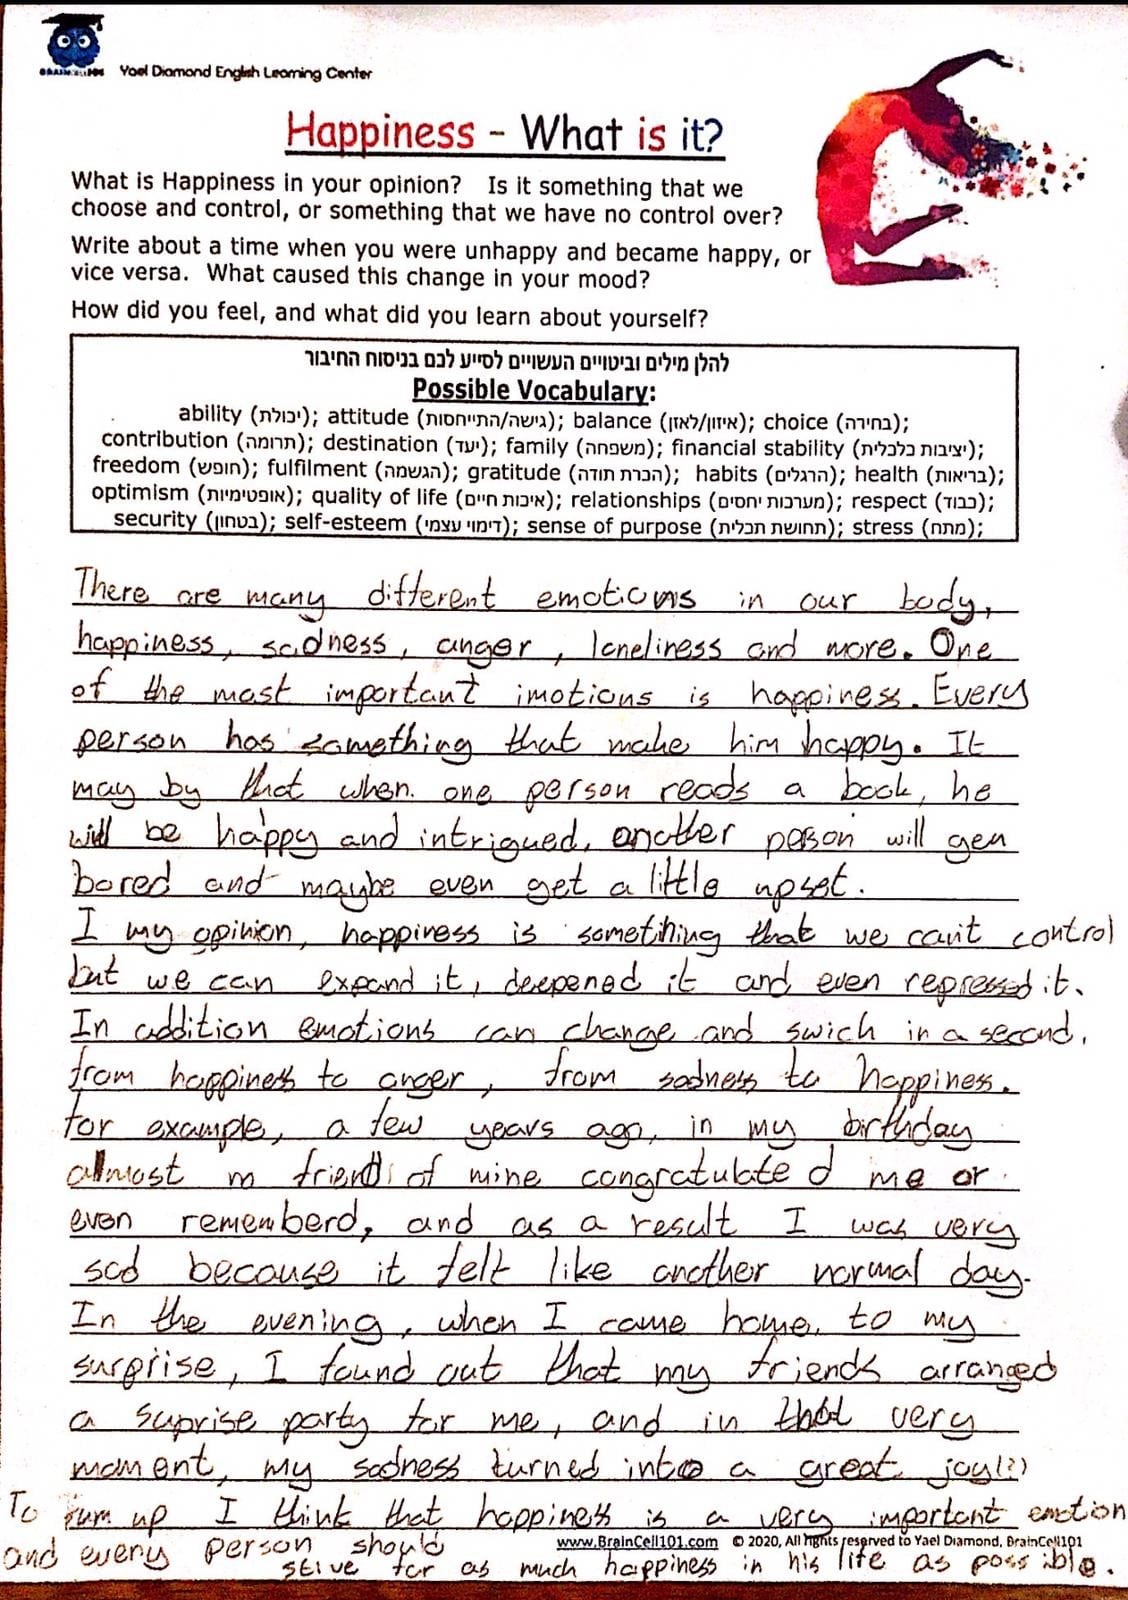 BRAINCELL101 Yael Diamond English Learning Center
Happiness - What is it?
What is Happiness in your opinion? Is it something that we
choose and control, or something that we have no control over?
Write about a time when you were unhappy and became happy, or
vice versa. What caused this change in your mood?
How did you feel, and what did you learn about yourself?
להלן מילים וביטויים העשויים לסייע לכם בניסוח החיבור
Possible Vocabulary:
ability (יכולת); attitude (גישה/התייחסות); balance (איזון/לאזן); choice (בחירה);
contribution (תרומה); destination (יעד); family (משפחה); financial stability (יציבות כלכלית);
freedom (חופש); fulfilment (הגשמה); gratitude (הכרת תודה); habits (הרגלים); health (בריאות);
optimism (אופטימיות); quality of life (איכות חיים); relationships (מערכות יחסים); respect (כבוד);
security (בטחון); self-esteem (דימוי עצמי); sense of purpose (תחושת תכלית); stress (מתח);
There are many different emotions in our body,
happiness, sadness, anger, loneliness and more. One
of the most important imotions is happiness. Every
person has something that make him happy. It
may by that when one person reads a book, he
will be happy and intrigued, another person will gen
bored and maybe even get a little upset.
I my opinion, happiness is something that we can't control
but we can expand it, deepened it and even repressed it.
In addition emotions can change and swich in a second,
from happiness to anger, from sadness to happiness.
for example, a few years ago, in my birthday
almost friends of mine congratulated me or
even rememberd, and as a result I was very
sad because it felt like another normal day.
In the evening, when I came home, to my
surprise, I found out that my friends arranged
a suprise party for me, and in that very
moment, my sadness turned into a great joy(:)
To sum up I think that happiness is a very important emotion
and every person should
www.BrainCell101.com © 2020, All rights reserved to Yael Diamond, BrainCell101
stive for as much happiness in his life as possible.